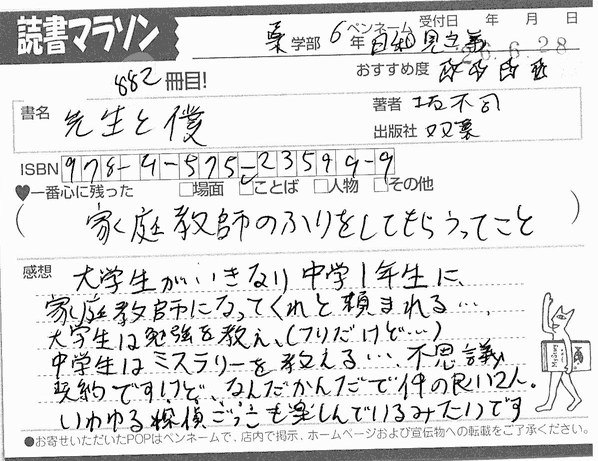 読書マラソン
薬学部 6年 ペンネーム 自細見主義 受付日 年 月 日
26.6.28
882冊目! おすすめ度
書名 先生と僕
著者 坂木司
出版社 双葉
ISBN 978-4-575-23599-9
♥一番心に残った □場面 □ことば □人物 □その他
(家庭教師のふりをしてもらうってこと)
感想 大学生がいきなり中学1年生に、
家庭教師になってくれと頼まれる…、
大学生は勉強を教え、(フリだけど…)
中学生はミステリーを教える…、不思議
契約ですけど、なんだかんだで仲の良い2人。
いわゆる探偵ごっこも楽しんでいるみたいです
●お寄せいただいたPOPはペンネームで、店内で掲示、ホームページおよび宣伝物への転載をご了承ください。